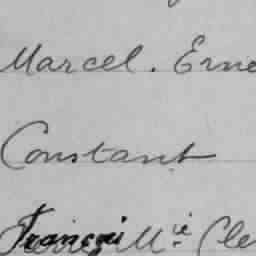 Marcel. Erne
Constant
Françai Mie Cle